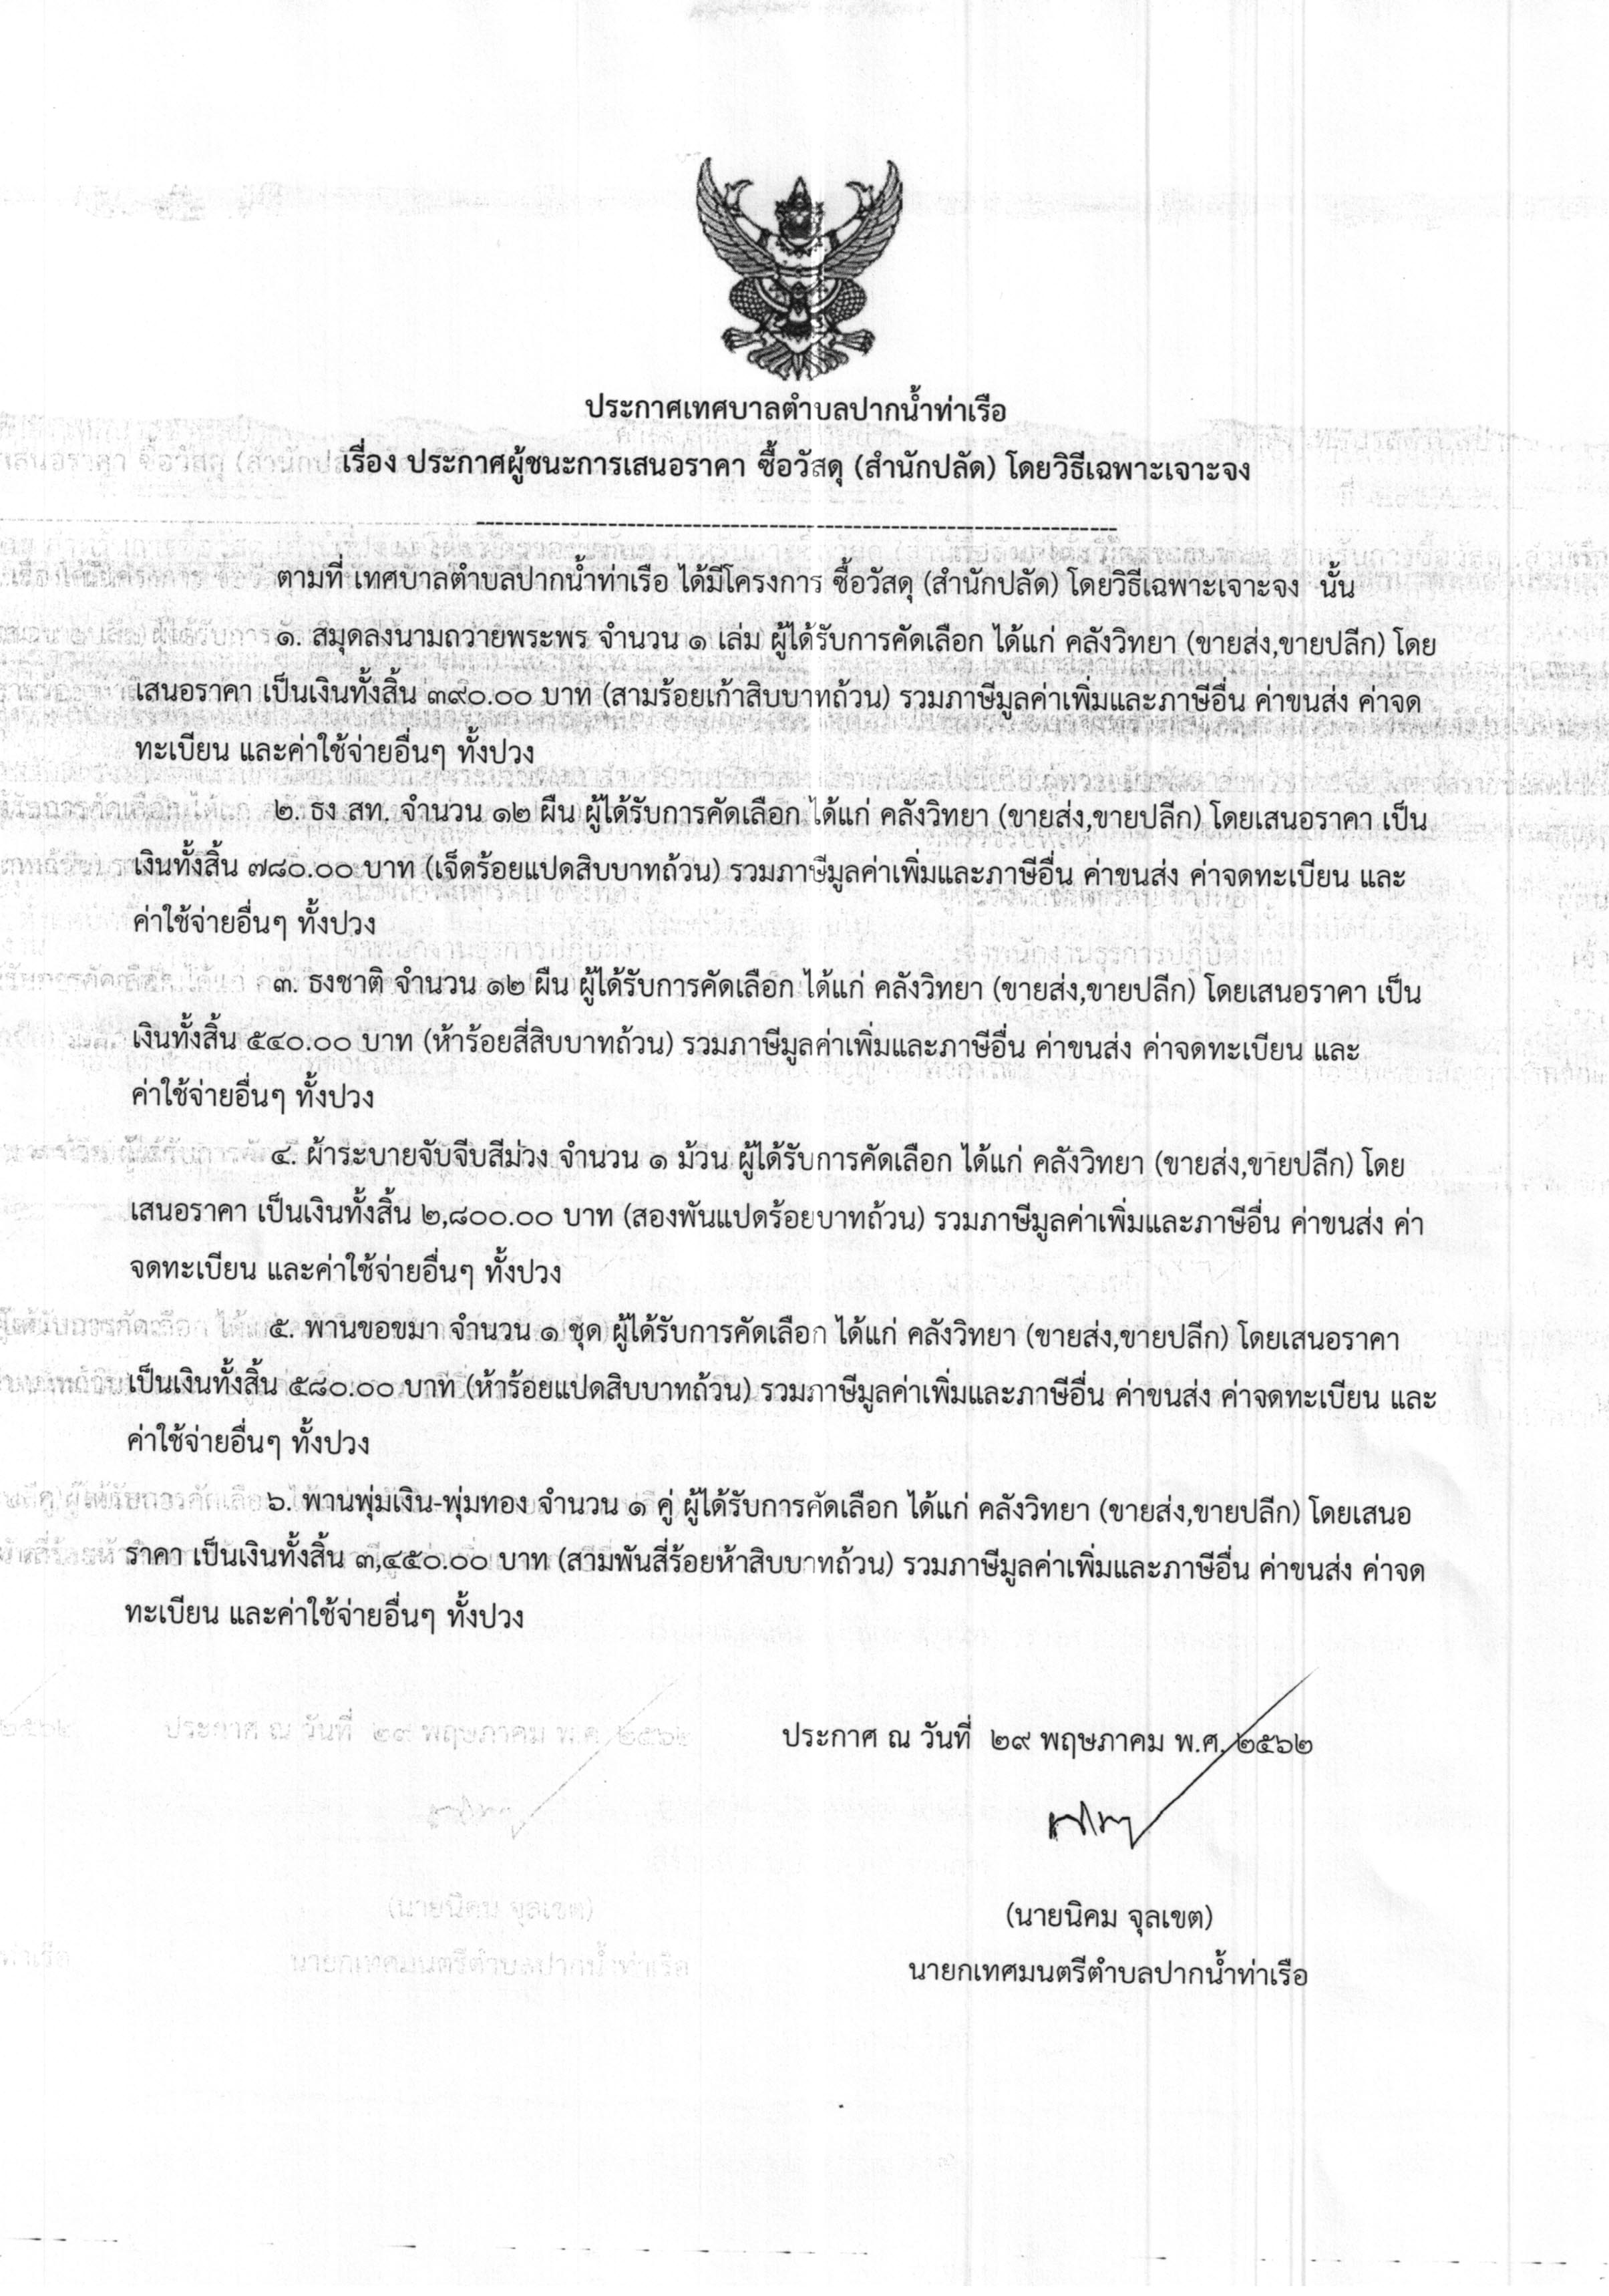 ประกาศเทศบาลตำบลปากน้ำท่าเรือ
เรื่อง ประกาศผู้ชนะการเสนอราคา ซื้อวัสดุ (สำนักปลัด) โดยวิธีเฉพาะเจาะจง
ตามที่ เทศบาลตำบลปากน้ำท่าเรือ ได้มีโครงการ ซื้อวัสดุ (สำนักปลัด) โดยวิธีเฉพาะเจาะจง นั้น
๑. สมุดลงนามถวายพระพร จำนวน ๑ เล่ม ผู้ได้รับการคัดเลือก ได้แก่ คลังวิทยา (ขายส่ง,ขายปลีก) โดย
เสนอราคา เป็นเงินทั้งสิ้น ๓๙๐.๐๐ บาท (สามร้อยเก้าสิบบาทถ้วน) รวมภาษีมูลค่าเพิ่มและภาษีอื่น ค่าขนส่ง ค่าจด
ทะเบียน และค่าใช้จ่ายอื่นๆ ทั้งปวง
๒. ธง สท. จำนวน ๑๒ ผืน ผู้ได้รับการคัดเลือก ได้แก่ คลังวิทยา (ขายส่ง,ขายปลีก) โดยเสนอราคา เป็น
เงินทั้งสิ้น ๗๘๐.๐๐ บาท (เจ็ดร้อยแปดสิบบาทถ้วน) รวมภาษีมูลค่าเพิ่มและภาษีอื่น ค่าขนส่ง ค่าจดทะเบียน และ
ค่าใช้จ่ายอื่นๆ ทั้งปวง
๓. ธงชาติ จำนวน ๑๒ ผืน ผู้ได้รับการคัดเลือก ได้แก่ คลังวิทยา (ขายส่ง,ขายปลีก) โดยเสนอราคา เป็น
เงินทั้งสิ้น ๕๔๐.๐๐ บาท (ห้าร้อยสี่สิบบาทถ้วน) รวมภาษีมูลค่าเพิ่มและภาษีอื่น ค่าขนส่ง ค่าจดทะเบียน และ
ค่าใช้จ่ายอื่นๆ ทั้งปวง
๔. ผ้าระบายจับจีบสีม่วง จำนวน ๑ ม้วน ผู้ได้รับการคัดเลือก ได้แก่ คลังวิทยา (ขายส่ง,ขายปลีก) โดย
เสนอราคา เป็นเงินทั้งสิ้น ๒,๘๐๐.๐๐ บาท (สองพันแปดร้อยบาทถ้วน) รวมภาษีมูลค่าเพิ่มและภาษีอื่น ค่าขนส่ง ค่า
จดทะเบียน และค่าใช้จ่ายอื่นๆ ทั้งปวง
๕. พานขอขมา จำนวน ๑ ชุด ผู้ได้รับการคัดเลือก ได้แก่ คลังวิทยา (ขายส่ง,ขายปลีก) โดยเสนอราคา
เป็นเงินทั้งสิ้น ๕๘๐.๐๐ บาท (ห้าร้อยแปดสิบบาทถ้วน) รวมภาษีมูลค่าเพิ่มและภาษีอื่น ค่าขนส่ง ค่าจดทะเบียน และ
ค่าใช้จ่ายอื่นๆ ทั้งปวง
๖. พานพุ่มเงิน-พุ่มทอง จำนวน ๑ คู่ ผู้ได้รับการคัดเลือก ได้แก่ คลังวิทยา (ขายส่ง,ขายปลีก) โดยเสนอ
ราคา เป็นเงินทั้งสิ้น ๓,๔๕๐.๐๐ บาท (สามพันสี่ร้อยห้าสิบบาทถ้วน) รวมภาษีมูลค่าเพิ่มและภาษีอื่น ค่าขนส่ง ค่าจด
ทะเบียน และค่าใช้จ่ายอื่นๆ ทั้งปวง
ประกาศ ณ วันที่ ๒๙ พฤษภาคม พ.ศ. ๒๕๖๒
(นายนิคม จุลเขต)
นายกเทศมนตรีตำบลปากน้ำท่าเรือ